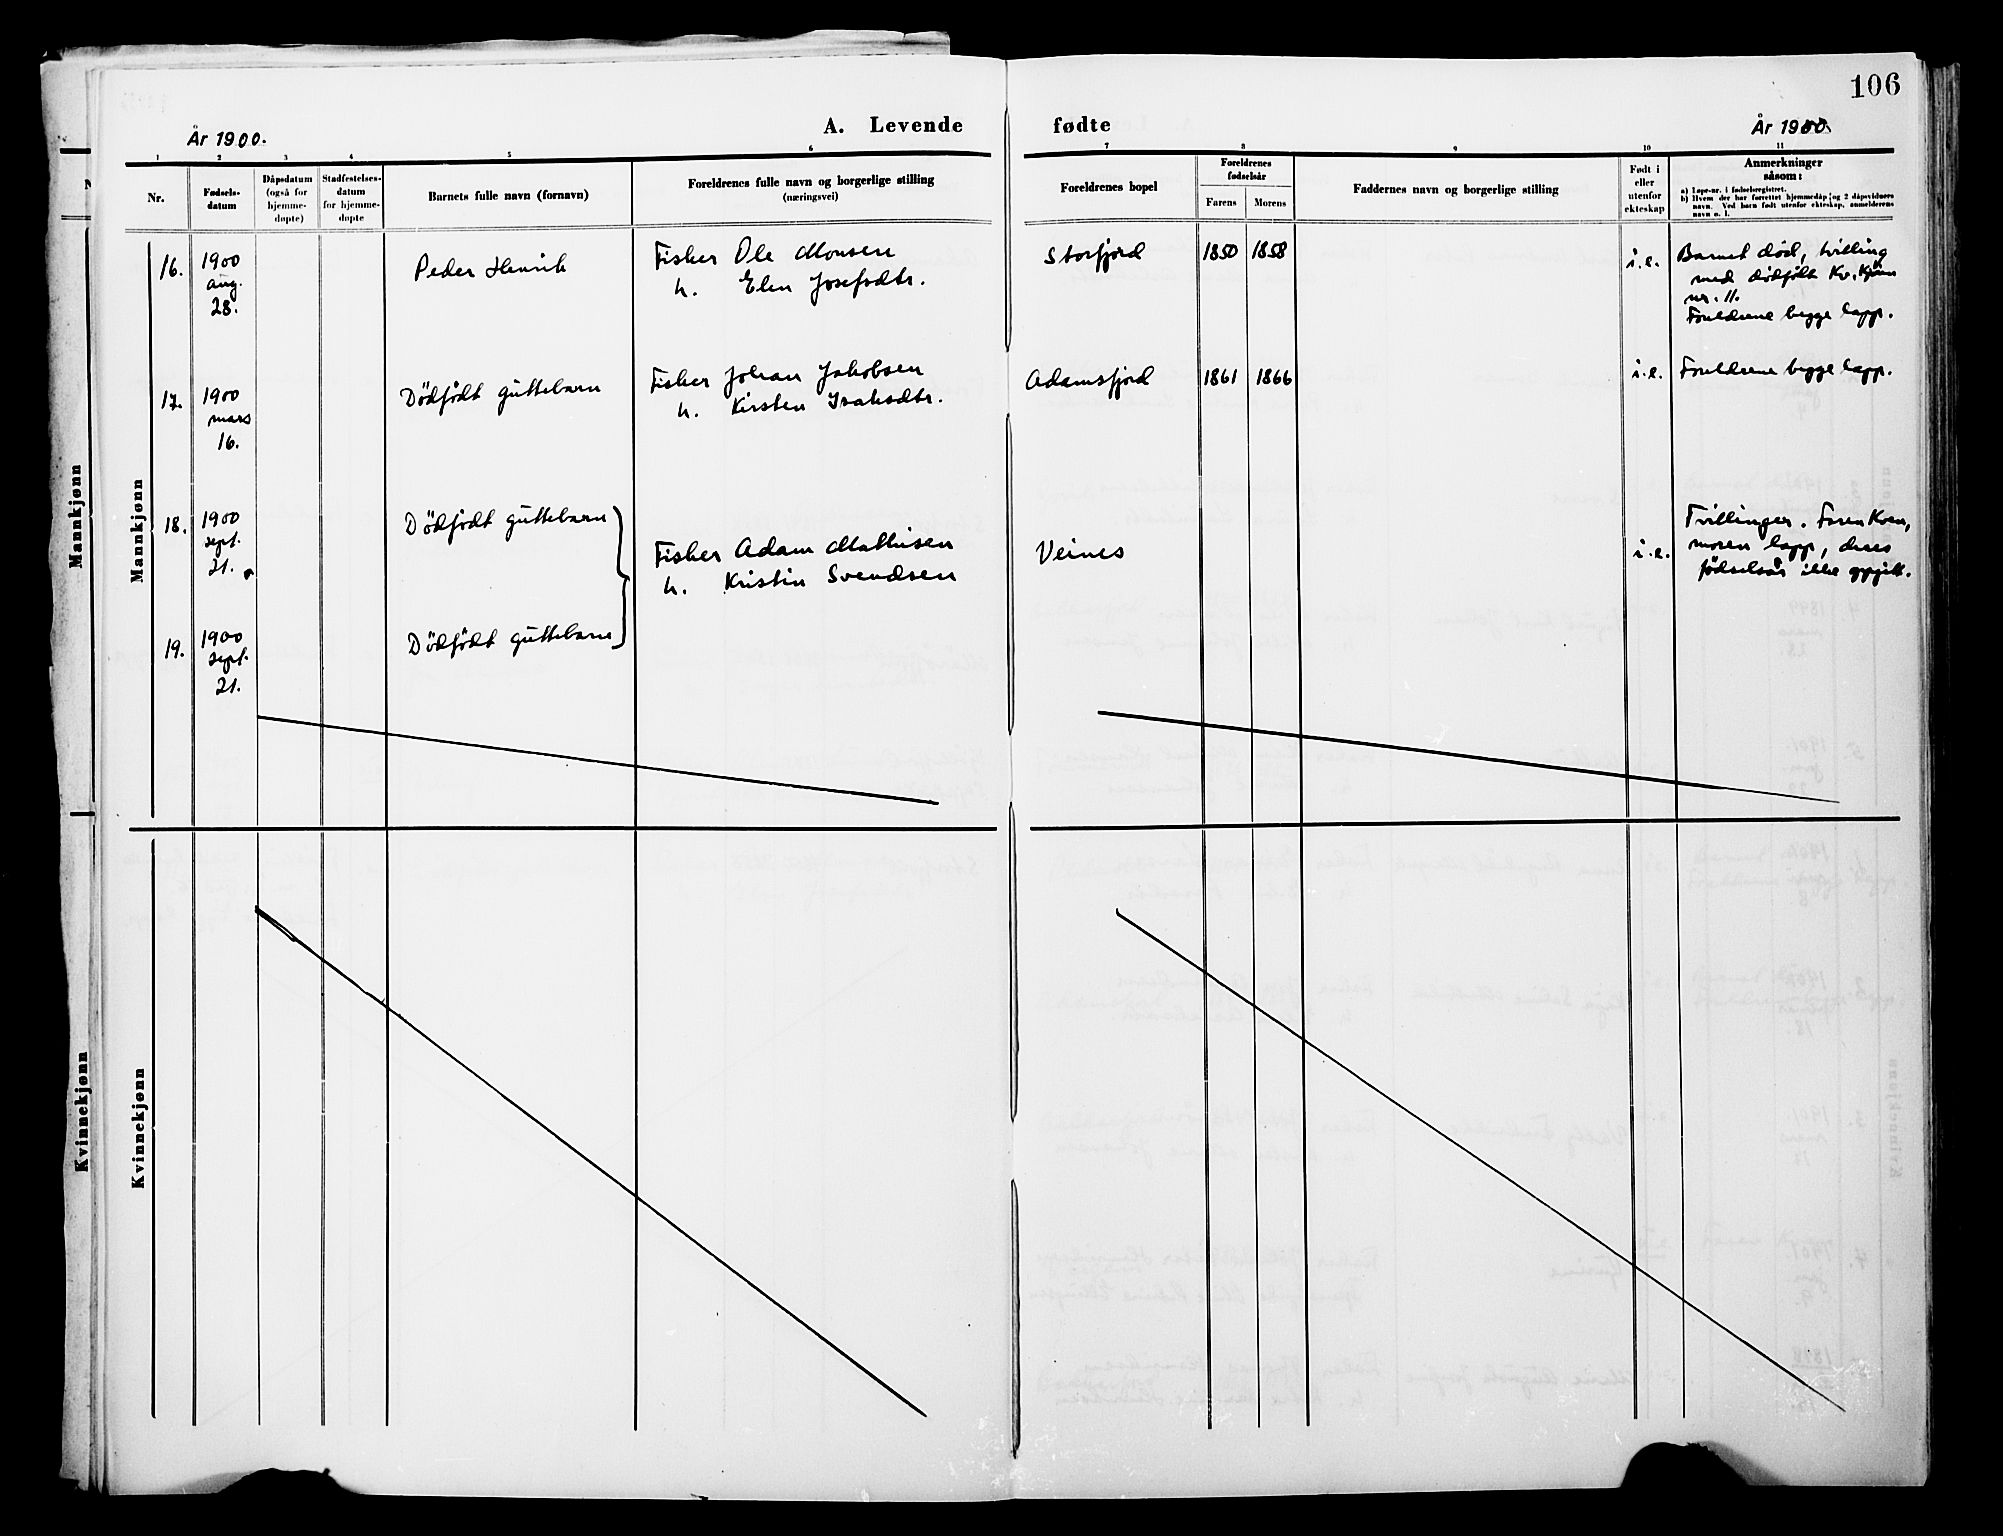 106
År 1900.
A. Levende
fødte
År 1900.
1 2 3 4 5 6 7 8 9 10 11
Nr.
Fødsels-
datum
Dåpsdatum
(også for
hjemme-
døpte)
Stadfestelses-
datum
for hjemme-
døpte
Barnets fulle navn (fornavn)
Foreldrenes fulle navn og borgerlige stilling
(næringsvei)
Foreldrenes bopel
Foreldrenes
fødselsår
Farens Morens
Faddernes navn og borgerlige stilling
Født i
eller
utenfor
ekteskap
Anmerkninger
såsom:
a) Løpe-nr. i fødselsregistret.
b) Hvem der har forrettet hjemmedåp og 2 dåpsvidners
navn. Ved barn født utenfor ekteskap, anmelderens
navn o. l.
Mannkjønn
Mannkjønn
16.
1900
aug.
28.
Peder Henrik
Fisker Ole Monsen
h. Elen Josefsdtr.
Storfjord
1850 1858
i.e.
Barnet död, tvilling
med dödfödt Kv.kjönn
nr. 11.
Foreldrene begge lapp.
17.
1900
mars
16.
Dödfödt guttebarn
Fisker Johan Jakobsen
h. Kirsten Isaksdtr.
Adamsfjord
1861 1866
i.e.
Foreldrene begge lapp.
18.
1900
sept.
21.
Dödfödt guttebarn
Fisker Adam Mathisen
h. Kristin Svendsen
Veines
i.e.
Tvillinger. Faren Kven,
moren lapp, deres
födselsår ikke oppgitt.
19.
1900
sept.
21.
Dödfödt guttebarn
Kvinnekjønn
Kvinnekjønn